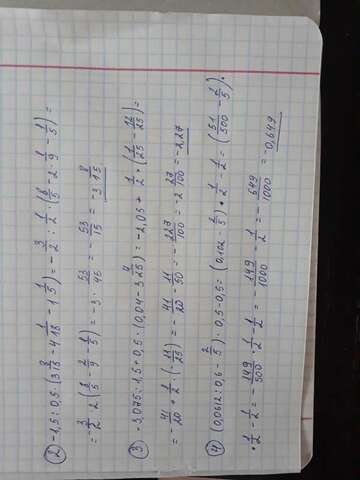 ② -1,5 : 0,5 · (3 8/18 - 4 1/18 - 1 1/5) = -3/2 : 1/2 · (8/5 - 2 · 1/9 - 1/5) =
= -3/2 · 2 (8/5 - 1/9 - 1/5) = -3 · 53/45 = -53/15 = -3 8/15
③ -3,075 : 1,5 + 0,5 · (0,04 - 3 4/25) = -2,05 + 1/2 · (1/25 - 12/25) =
= -41/20 + 1/2 · (-11/25) = -41/20 - 11/50 = -227/100 = -2 27/100 = -2,27
④ (0,0612 : 0,6 - 2/5) · 0,5 - 0,5 = (0,102 - 2/5) · 1/2 - 1/2 = (51/500 - 2/5) ·
· 1/2 - 1/2 = -149/500 · 1/2 - 1/2 = -149/1000 - 1/2 = -649/1000 = -0,649